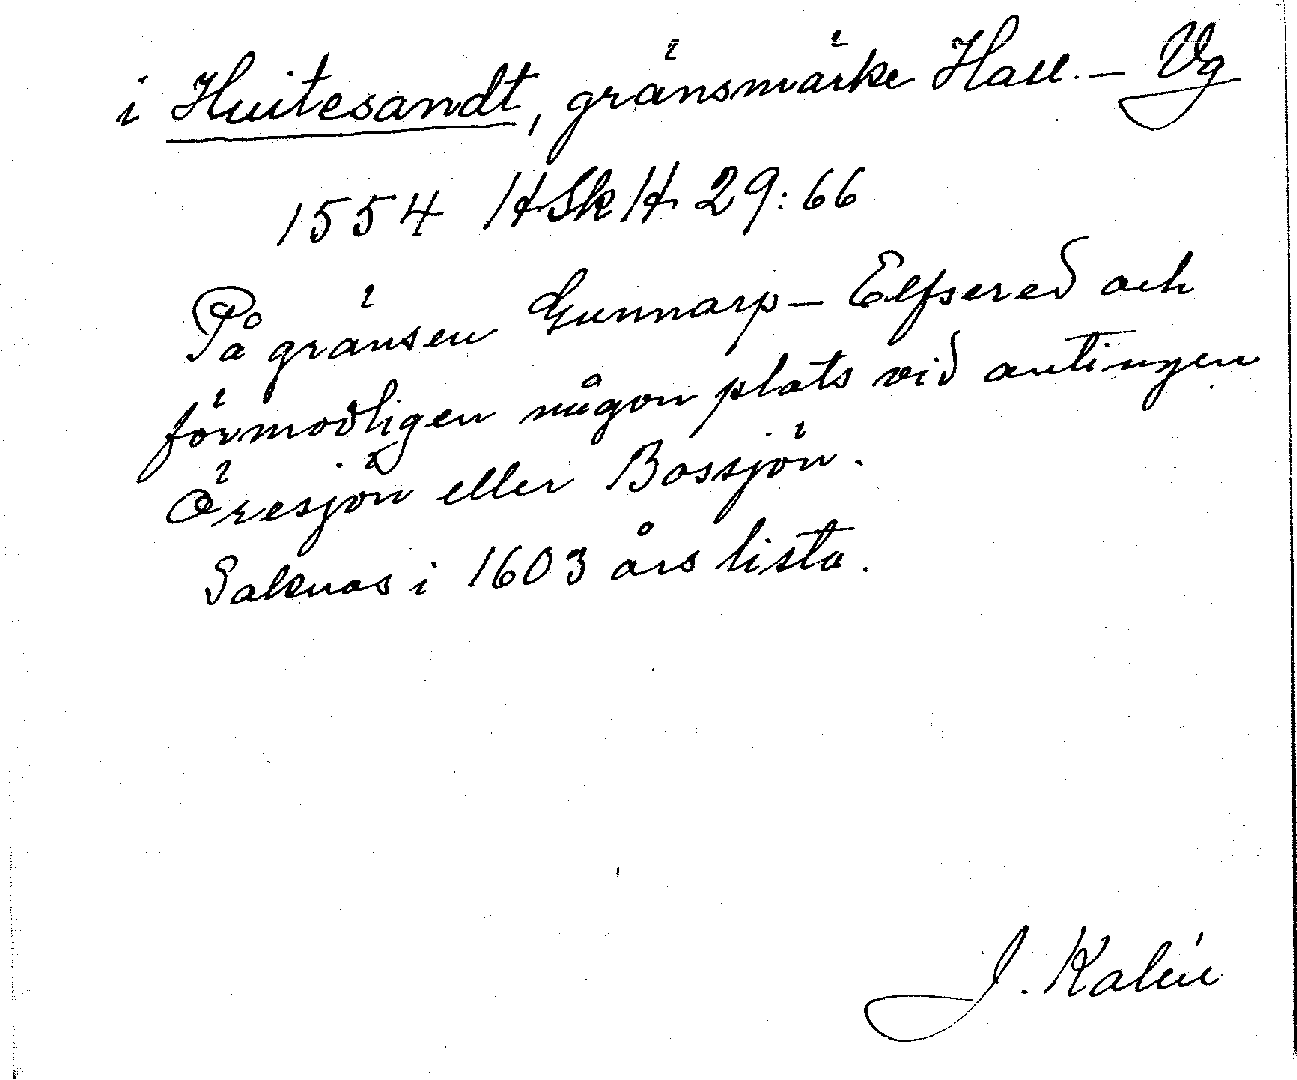 i Huitesandt, gränsmärke Hall. – Vg
1554 HSkH 29:66
På gränsen Gunnarp – Elfsered och
förmodligen någon plats vid antingen
Öresjön eller Bossjön.
Saknas i 1603 års lista.
J. Kalén